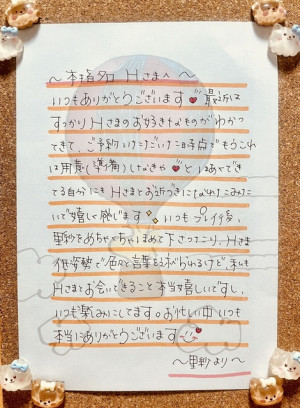 ～本指名 Hさまへ～
いつもありがとうございます❤最近は
すっかりHさまのお好きなものがわかっ
てきて、ご予約いただいた時点でもうこれ
は用意(準備)しなきゃ❤とはあくでき
てる自分にもHさまとお近づきになれたみた
いで嬉しく感じます✨いつもプレイ後、
里紗をめちゃくちゃほめて下さったり、Hさま
低姿勢で色々と言葉えらばられるけど、私も
Hさまとお会いできること本当嬉しいですし、
いつも楽しみにしてます。お忙しい中いつも
本当にありがとうございます❤
～里紗より～